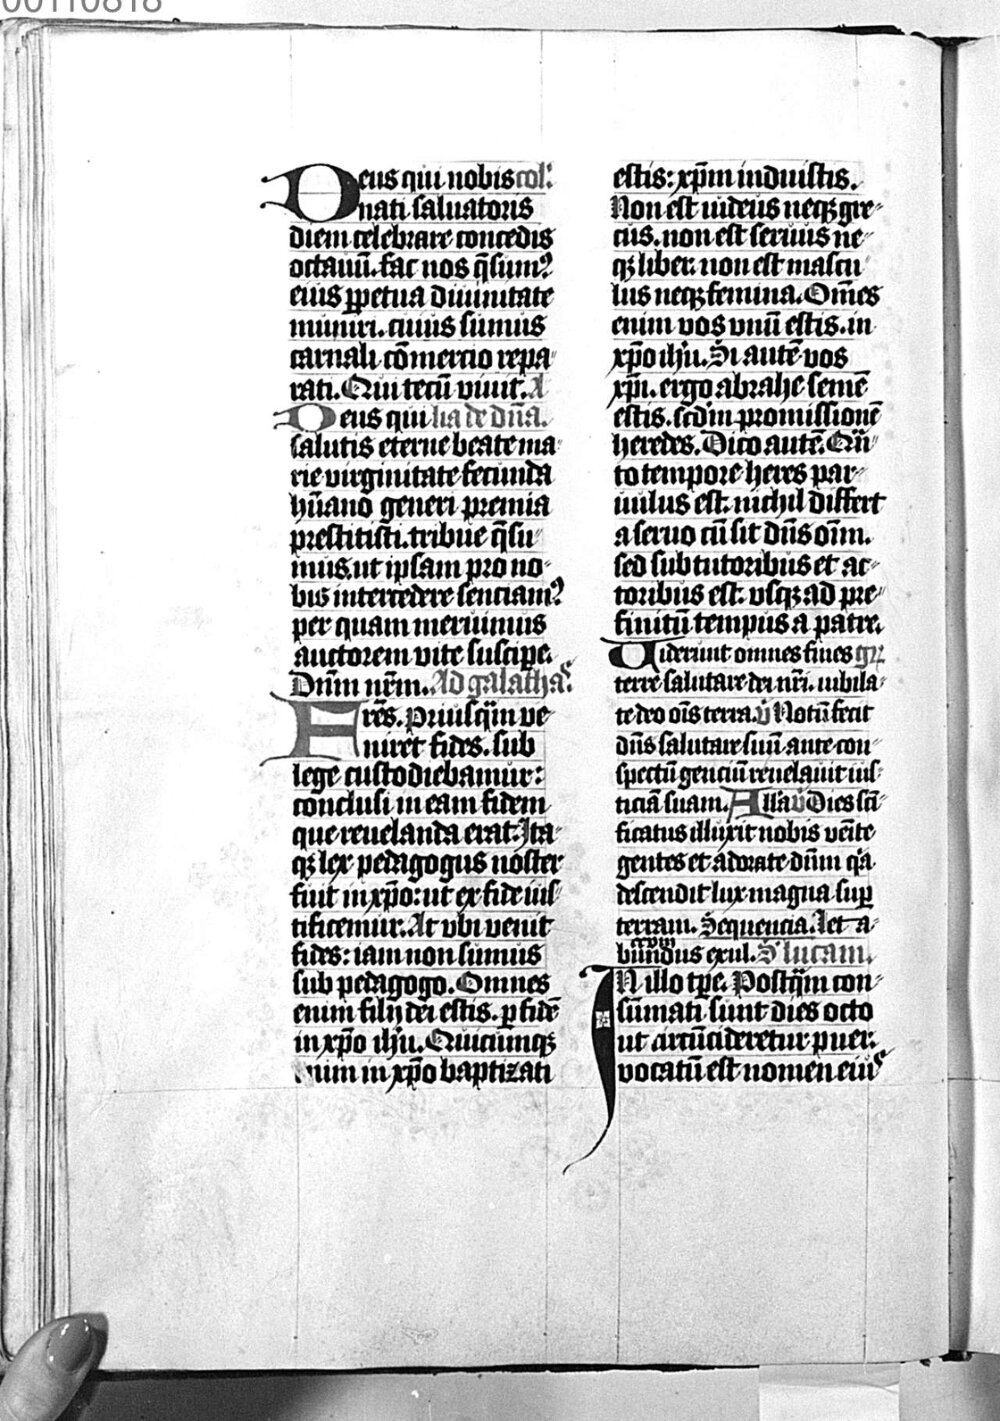 00110818
Deus qui nobis col̄.
nati saluatoris
diem celebrare concedis
octauū. fac nos q̄sumꝰ
eius ꝑpetua diuinitate
muniri. cuius sumus
carnali cōmercio repa
rati. Qui tecū viuit. A
Deus qui lia de dn̄a.
salutis eterne beate ma
rie virginitate fecunda
hūano generi premia
prestitisti. tribue q̄su
mus. ut ipsam pro no
bis intercedere senciamꝰ
per quam meruimus
auctorem vite suscipe.
Dn̄m nr̄m. Ad galathas.
Fr̄es. Priusq̄m ve
niret fides. sub
lege custodiebamur:
conclusi in eam fidem
que reuelanda erat. Ita
qꝫ lex pedagogus noster
fuit in xp̄o: ut ex fide ius
tificemur. At vbi venit
fides: iam non sumus
sub pedagogo. Omnes
enim filij dei estis. ꝑ fidē
in xp̄o ih̄u. Quicumqꝫ
enim in xp̄o baptizati
estis: xp̄m induistis.
Non est iudeus neqꝫ gre
cus. non est seruus ne
qꝫ liber. non est mascu
lus neqꝫ femina. Om̄es
enim vos vnū estis. in
xp̄o ih̄u. Si autē vos
xp̄i. ergo abrahe semē
estis. scd̄m promissionē
heredes. Dico autē. Qūi
to tempore heres par
uulus est. nichil differt
a seruo cū sit dn̄s oīm.
sed sub tutoribus et ac
toribus est. vsqꝫ ad pre
finitū tempus a patre.
Viderunt omnes fines gꝛ̄.
terre salutare dei nr̄i. iubila
te deo oīs terra. v̄ Notū fecit
dn̄s salutare suū. ante con
spectū genciū reuelauit ius
ticiā suam. Alla v̄ Dies scī
ficatus illuxit nobis venite
gentes et adorate dn̄m q̄a
descendit lux magna suꝑ
terram. Sequencia. Let a
bundus exul. S lucam.
In illo tp̄e. Postq̄m con
sūmati sunt dies octo
ut circūcideretur puer:
vocatū est nomen eius